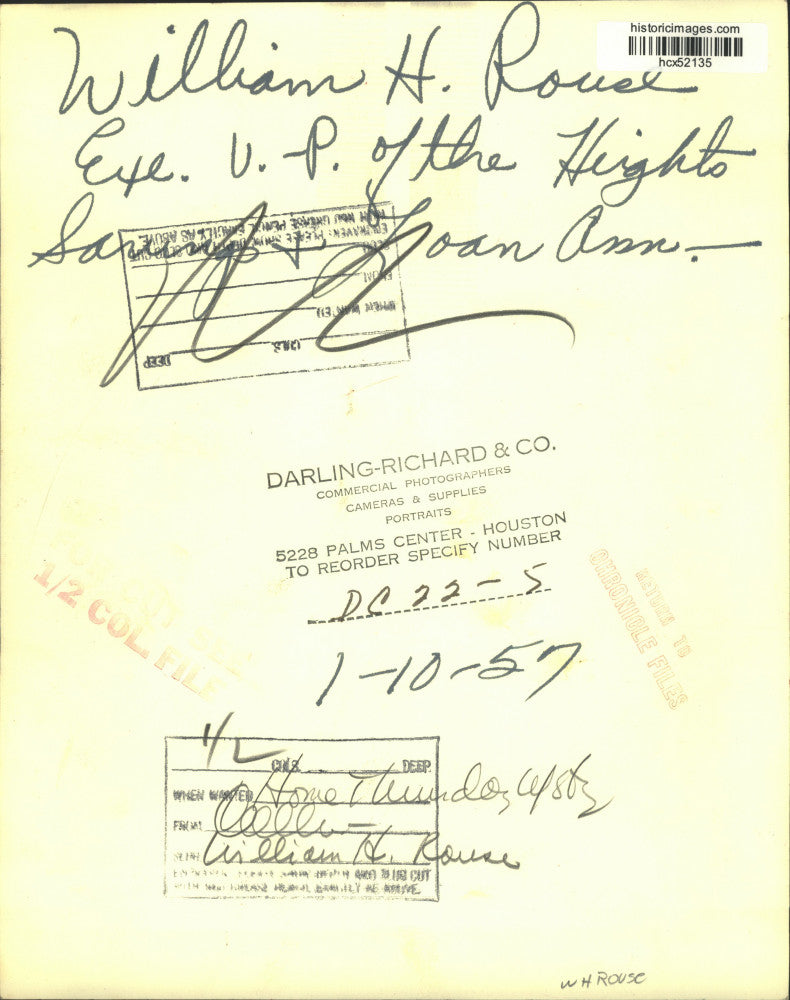 historicimages.com
hcx52135
William H. Rouse
Exe. V.-P. of the Heights
Savings & Loan Assn.—
ENGRAVER: PLEASE
FROM
WHEN WANTED
COLS. DEEP
DARLING-RICHARD & CO.
COMMERCIAL PHOTOGRAPHERS
CAMERAS & SUPPLIES
PORTRAITS
5228 PALMS CENTER - HOUSTON
TO REORDER SPECIFY NUMBER
DC 22-5
1/2 COL. FILE
RETURN TO
CHRONICLE FILES
1-10-57
1/2 COLS. DEEP
WHEN WANTED Home Thursday
FROM
William H. Rouse
W H ROUSE